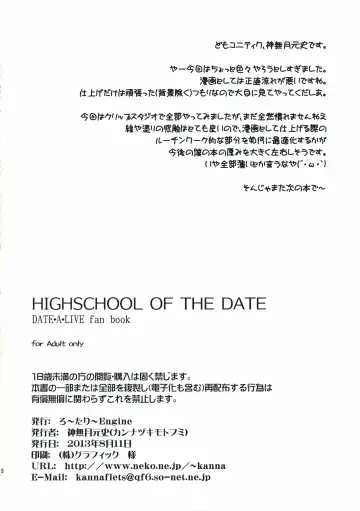 どもコニティク、神無月元史です。
やー今回はちょっと色々やろうとしすぎました。
漫画としては正直流れが悪いですね。
仕上げだけは頑張った(背景除く)つもりなので大目に見てやってくだしあ。
今回はクリップスタジオで全部やってみましたが、まだ全然慣れませんねえ
絵や塗りの感触はとても良いので、漫画として仕上げる際の
ルーチンワーク的な部分を如何に最適化するかが
今後の僕の本の厚みを大きく左右しそうです。
いや全部薄いとか言うなや(´・ω・`)
そんじゃまた次の本で～
HIGHSCHOOL OF THE DATE
DATE・A・LIVE fan book
for Adult only
18歳未満の方の閲覧・購入は固く禁じます。
本書の一部または全部を複製し(電子化も含む)再配布する行為は
有償無償に関わらずこれを禁止します。
発行: ろ～たり～Engine
発行者: 神無月元史(カンナヅキモトフミ)
発行日: 2013年8月11日
印刷: (株)グラフィック 様
URL: http://www.neko.ne.jp/~kanna
E-Mail: kannaflets@qf6.so-net.ne.jp